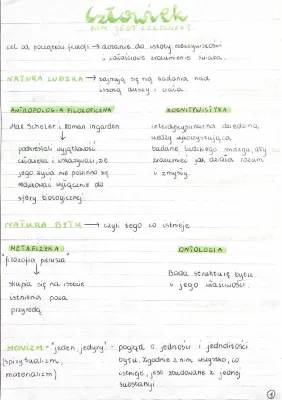 człowiek
KIM JEST CZŁOWIEK?
cel od początków filozofii → dotarcie do istoty rzeczywistości
i całościowe zrozumienie świata.
NATURA LUDZKA → zajmują się nią badania nad
istotą duszy i ciała.
ANTROPOLOGIA FILOZOFICZNA
KOGNITYWISTYKA
Max Scheler i Roman Ingarden
podkreślali wyjątkowość
człowieka i wskazywali, że
jego życia nie powinno się
redukować wyłącznie do
sfery biologicznej
interdyscyplinarna dziedzina
wiedzy wykorzystująca
badanie ludzkiego mózgu, aby
zrozumieć jak działa rozum
i zmysły.
NATURA BYTU → czyli tego co istnieje.
METAFIZYKA
ONTOLOGIA
"filozofia pierwsza"
skupia się na istocie
istnienia poza
przyrodą
Bada strukturę bytu
i jego właściwości.
MONIZM - "jeden, jedyny" - pogląd o jedności i jednolitości
(spirytualizm,
materializm)
bytu. Zgodnie z nim wszystko, co
istnieje, jest zbudowane z jednej
substancji
1